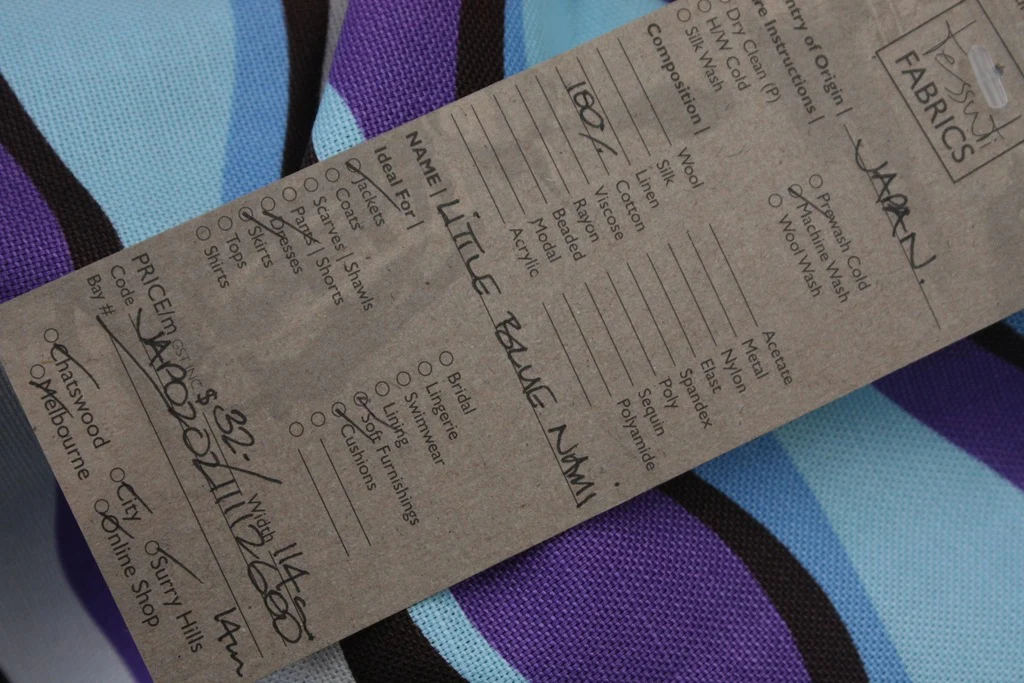 tessuti
FABRICS
ntry of Origin | JAPAN.
re Instructions |
Dry Clean (P)
H/W Cold
Silk Wash
Prewash Cold
Machine Wash
Wool Wash
Composition |
Wool
Silk
Linen
100% Cotton
Viscose
Rayon
Beaded
Modal
Acrylic
Acetate
Metal
Nylon
Elast
Spandex
Poly
Sequin
Polyamide
NAME | LITTLE BLUE NAMI
Ideal For |
Jackets
Coats
Scarves | Shawls
Pants | Shorts
Dresses
Skirts
Tops
Shirts
Bridal
Lingerie
Swimwear
Lining
Soft Furnishings
Cushions
PRICE/m GST INC $32.- Width 114cm
Code
Bay # 14m
Chatswood
City
Surry Hills
Melbourne
Online Shop